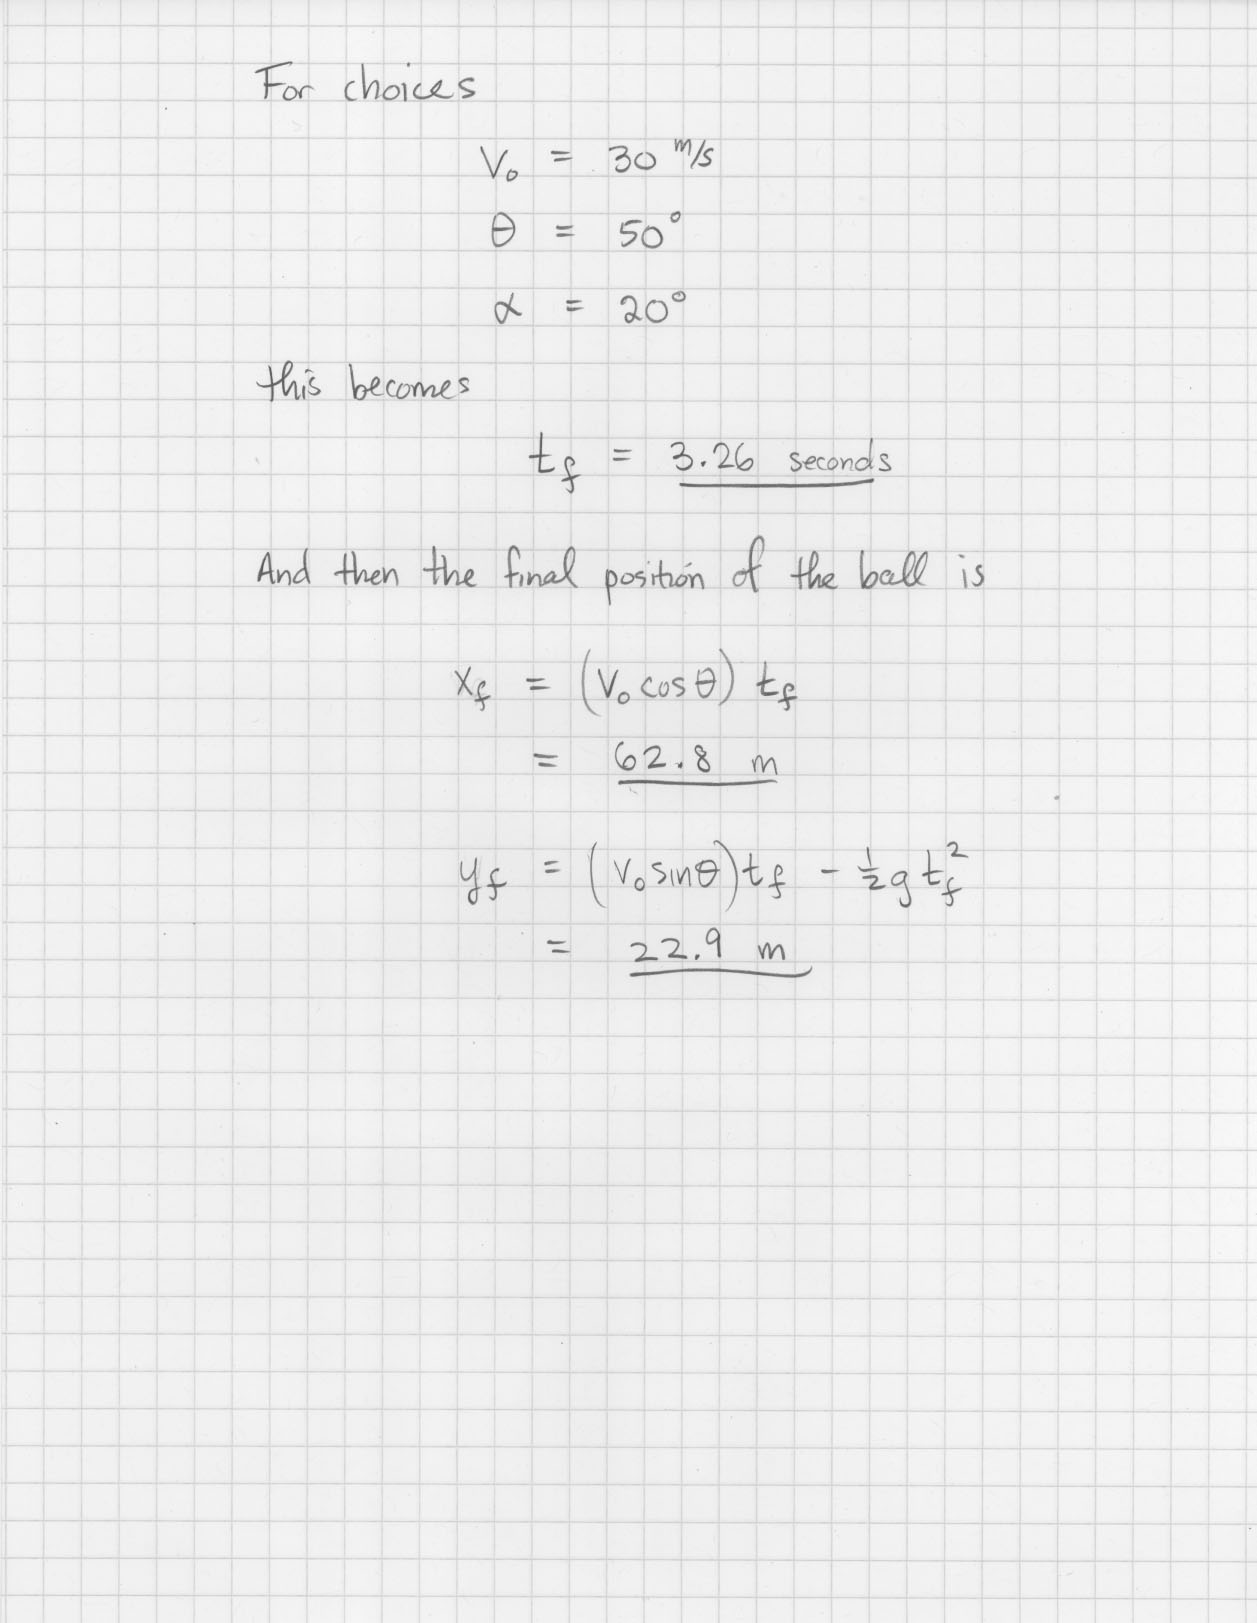 For choices
V₀ = 30 m/s
θ = 50°
α = 20°
this becomes
t_f = 3.26 seconds
And then the final position of the ball is
x_f = (V₀ cos θ) t_f
= 62.8 m
y_f = (V₀ sin θ) t_f - ½ g t_f²
= 22.9 m